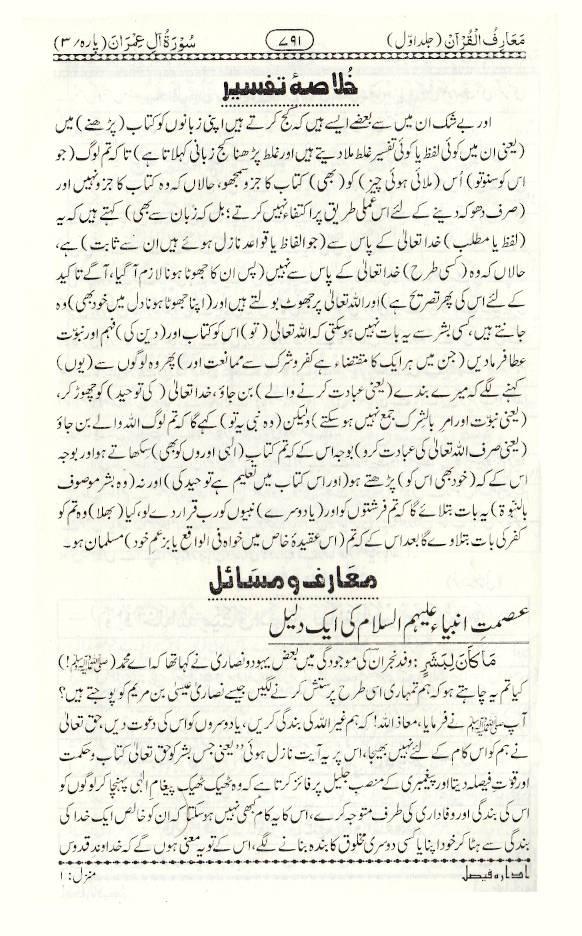 معارف القرآن (جلد اوّل)
۷۹۱
سورۃ آل عمران (پارہ/۳)
خلاصۂ تفسیر
اور بے شک ان میں سے بعضے ایسے ہیں کہ کج کرتے ہیں اپنی زبانوں کو کتاب (پڑھنے) میں
(یعنی ان میں کوئی لفظ یا کوئی تفسیر غلط ملا دیتے ہیں اور غلط پڑھنا کج زبانی کہلاتا ہے) تاکہ تم لوگ (جو
اس کو سنو تو) اُس (ملائی ہوئی چیز) کو (بھی) کتاب کا جزو سمجھو، حالاں کہ وہ کتاب کا جزو نہیں اور
(صرف دھوکہ دینے کے لئے اس عملی طریق پر اکتفاء نہیں کرتے؛ بل کہ زبان سے بھی) کہتے ہیں کہ یہ
(لفظ یا مطلب) خدا تعالیٰ کے پاس سے (جو الفاظ یا قواعد نازل ہوئے ہیں ان سے ثابت) ہے،
حالاں کہ وہ (کسی طرح) خدا تعالیٰ کے پاس سے نہیں (پس ان کا جھوٹا ہونا لازم آ گیا، آگے تاکید
کے لئے اس کی پھر تصریح ہے) اور اللہ تعالیٰ پر جھوٹ بولتے ہیں اور (اپنا جھوٹا ہونا دل میں خود بھی) وہ
جانتے ہیں، کسی بشر سے یہ بات نہیں ہو سکتی کہ اللہ تعالیٰ (تو) اس کو کتاب اور (دین کی) فہم اور نبوّت
عطا فرما دیں (جن میں ہر ایک کا مقتضاء ہے کفر و شرک سے ممانعت اور) پھر وہ لوگوں سے (یوں)
کہنے لگے کہ میرے بندے (یعنی عبادت کرنے والے) بن جاؤ، خدا تعالیٰ (کی توحید) کو چھوڑ کر،
(یعنی نبوّت اور امر بالشرک جمع نہیں ہو سکتے) ولیکن (وہ نبی یہ تو) کہے گا کہ تم لوگ اللہ والے بن جاؤ
(یعنی صرف اللہ تعالیٰ کی عبادت کرو) بوجہ اس کے کہ تم کتاب (الٰہی اوروں کو بھی) سکھاتے ہو اور بوجہ
اس کے کہ (خود بھی اس کو) پڑھتے ہو (اور اس کتاب میں تعلیم ہے توحید کی) اور نہ (وہ بشر موصوف
بالنبوۃ) یہ بات بتلائے گا کہ تم فرشتوں کو اور (یا دوسرے) نبیوں کو رب قرار دے لو، کیا (بھلا) وہ تم کو
کفر کی بات بتلاوے گا بعد اس کے کہ تم (اس عقیدۂ خاص میں خواہ فی الواقع یا بزعمِ خود) مسلمان ہو۔
معارف و مسائل
عصمتِ انبیاء علیہم السلام کی ایک دلیل
مَا كَانَ لِبَشَرٍ: وفد نجران کی موجودگی میں بعض یہود و نصاریٰ نے کہا تھا کہ اے محمد (ﷺ!)
کیا تم یہ چاہتے ہو کہ ہم تمہاری اسی طرح پرستش کرنے لگیں جیسے نصاریٰ عیسیٰ بن مریم کو پوجتے ہیں؟
آپ ﷺ نے فرمایا، معاذ اللہ! کہ ہم غیر اللہ کی بندگی کریں، یا دوسروں کو اس کی دعوت دیں، حق تعالیٰ
نے ہم کو اس کام کے لئے نہیں بھیجا، اس پر یہ آیت نازل ہوئی“ یعنی جس بشر کو حق تعالیٰ کتاب و حکمت
اور قوت فیصلہ دیتا اور پیغمبری کے منصب جلیل پر فائز کرتا ہے کہ وہ ٹھیک ٹھیک پیغام الٰہی پہنچا کر لوگوں کو
اس کی بندگی اور وفاداری کی طرف متوجہ کرے، اس کا یہ کام کبھی نہیں ہو سکتا کہ ان کو خالص ایک خدا کی
بندگی سے ہٹا کر خود اپنا یا کسی دوسری مخلوق کا بندہ بنانے لگے، اس کے تو یہ معنی ہوں گے کہ خداوند قدوس
ادارہ فیصل
منزل: ۱